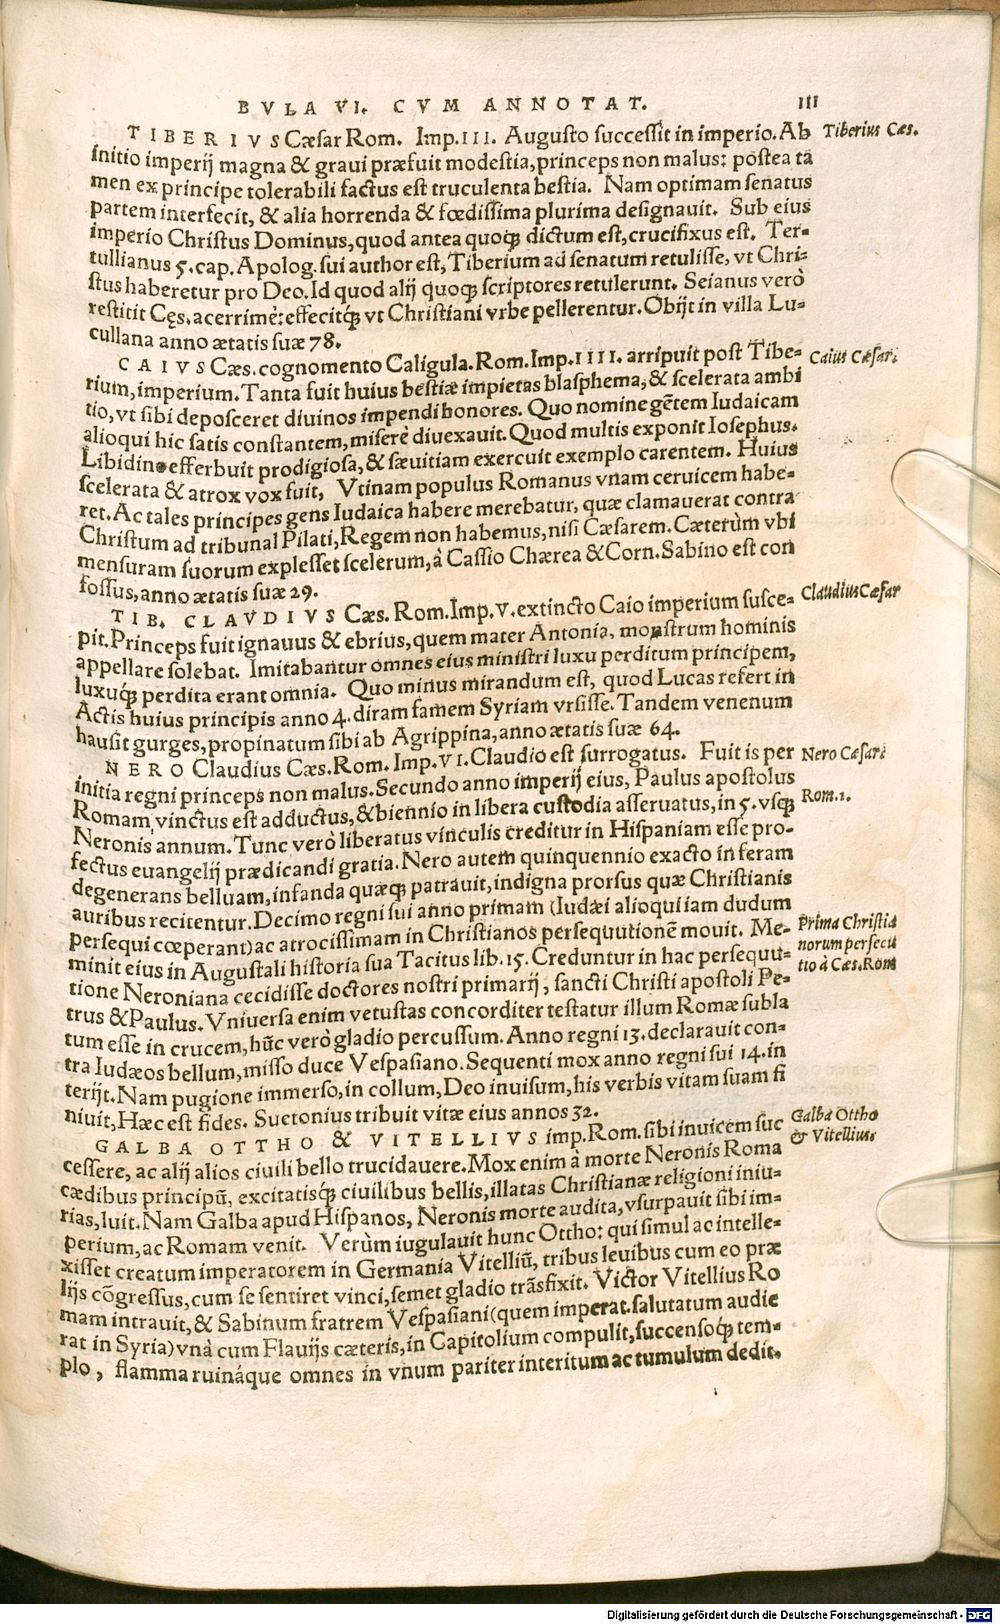 BVLA VI. CVM ANNOTAT. III
TIBERIVS Cæsar Rom. Imp. III. Augusto successit in imperio. Ab
Tiberius Cæs.
initio imperij magna & graui præfuit modestia, princeps non malus: postea ta
men ex principe tolerabili factus est truculenta bestia. Nam optimam senatus
partem interfecit, & alia horrenda & fœdissima plurima designauit. Sub eius
imperio Christus Dominus, quod antea quoqȝ dictum est, crucifixus est. Ter-
tullianus 5. cap. Apolog. sui author est, Tiberium ad senatum retulisse, vt Chri-
stus haberetur pro Deo. Id quod alij quoqȝ scriptores retulerunt. Seianus verò
restitit Cęs. acerrimè: effecitqȝ vt Christiani vrbe pellerentur. Obijt in villa Lu-
cullana anno ætatis suæ 78.
CAIVS Cæs. cognomento Caligula. Rom. Imp. IIII. arripuit post Tibe-
Caius Cæsar.
rium, imperium. Tanta fuit huius bestiæ impietas blasphema, & scelerata ambi
tio, vt sibi deposceret diuinos impendi honores. Quo nomine gẽtem Iudaicam
alioqui hic satis constantem, miserè diuexauit. Quod multis exponit Iosephus.
Libidine efferbuit prodigiosa, & sæuitiam exercuit exemplo carentem. Huius
scelerata & atrox vox fuit, Vtinam populus Romanus vnam ceruicem habe-
ret. Ac tales principes gens Iudaica habere merebatur, quæ clamauerat contra
Christum ad tribunal Pilati, Regem non habemus, nisi Cæsarem. Cæterùm vbi
mensuram suorum explesset scelerum, à Cassio Chærea & Corn. Sabino est con
fossus, anno ætatis suæ 29.
TIB. CLAVDIVS Cæs. Rom. Imp. V. extincto Caio imperium susce-
Claudius Cæsar
pit. Princeps fuit ignauus & ebrius, quem mater Antonia, monstrum hominis
appellare solebat. Imitabantur omnes eius ministri luxu perditum principem,
luxuqȝ perdita erant omnia. Quo minus mirandum est, quod Lucas refert in
Actis huius principis anno 4. diram famem Syriam vrsisse. Tandem venenum
hausit gurges, propinatum sibi ab Agrippina, anno ætatis suæ 64.
NERO Claudius Cæs. Rom. Imp. VI. Claudio est surrogatus. Fuit is per
Nero Cæsar.
initia regni princeps non malus. Secundo anno imperij eius, Paulus apostolus
Romam vinctus est adductus, & biennio in libera custodia asseruatus, in 5. vsqȝ
Rom. 1.
Neronis annum. Tunc verò liberatus vinculis creditur in Hispaniam esse pro-
fectus euangelij prædicandi gratia. Nero autem quinquennio exacto in feram
degenerans belluam, infanda quæqȝ patrauit, indigna prorsus quæ Christianis
auribus recitentur. Decimo regni sui anno primam (Iudæi alioqui iam dudum
persequi cœperant) ac atrocissimam in Christianos persequutionẽ mouit. Me-
Prima Christia
norum persecu
tio à Cæs. Rom
minit eius in Augustali historia sua Tacitus lib. 15. Creduntur in hac persequu-
tione Neroniana cecidisse doctores nostri primarij, sancti Christi apostoli Pe-
trus & Paulus. Vniuersa enim vetustas concorditer testatur illum Romæ subla
tum esse in crucem, hũc verò gladio percussum. Anno regni 13. declarauit con-
tra Iudæos bellum, misso duce Vespasiano. Sequenti mox anno regni sui 14. in
terijt. Nam pugione immerso, in collum, Deo inuisum, his verbis vitam suam fi
niuit, Hæc est fides. Suetonius tribuit vitæ eius annos 32.
GALBA OTTHO & VITELLIVS imp. Rom. sibi inuicem suc
Galba Ottho
& Vitellius
cessere, ac alij alios ciuili bello trucidauere. Mox enim à morte Neronis Roma
cædibus principũ, excitatisqȝ ciuilibus bellis, illatas Christianæ religioni iniu-
rias, luit. Nam Galba apud Hispanos, Neronis morte audita, vsurpauit sibi im-
perium, ac Romam venit. Verùm iugulauit hunc Ottho: qui simul ac intelle-
xisset creatum imperatorem in Germania Vitelliũ, tribus leuibus cum eo præ
lijs cõgressus, cum se sentiret vinci, semet gladio trãsfixit. Victor Vitellius Ro
mam intrauit, & Sabinum fratrem Vespasiani (quem imperat. salutatum audie
rat in Syria) vnà cum Flauijs cæteris, in Capitolium compulit, succensoqȝ tem-
plo, flamma ruináque omnes in vnum pariter interitum ac tumulum dedit.
Digitalisierung gefördert durch die Deutsche Forschungsgemeinschaft - DFG